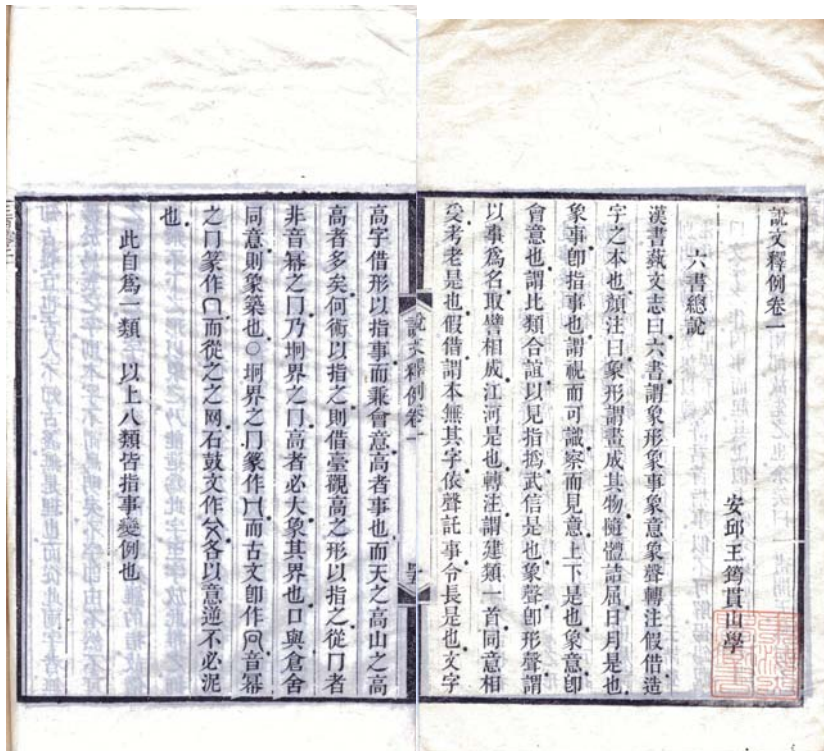 說文釋例卷一
安邱王筠貫山學
六書總說
漢書蓺文志曰六書謂象形象事象意象聲轉注假借造
字之本也顏注曰象形謂畫成其物隨體詰屈日月是也
象事卽指事也謂視而可識察而見意上下是也象意卽
會意也謂比類合誼以見指撝武信是也象聲卽形聲謂
以事爲名取譬相成江河是也轉注謂建類一首同意相
受考老是也假借謂本無其字依聲託事令長是也文字
說文釋例卷一
高字借形以指事而兼會意高者事也而天之高山之高
高者多矣何術以指之則借臺觀高之形以指之從冂者
非音冪之冂乃坰界之冂高者必大象其界也口與倉舍
同意則象築也○坰界之冂篆作而古文卽作音冪
之冂篆作而從之之网石鼓文作各以意逆不必泥
也
此自爲一類 以上八類皆指事變例也